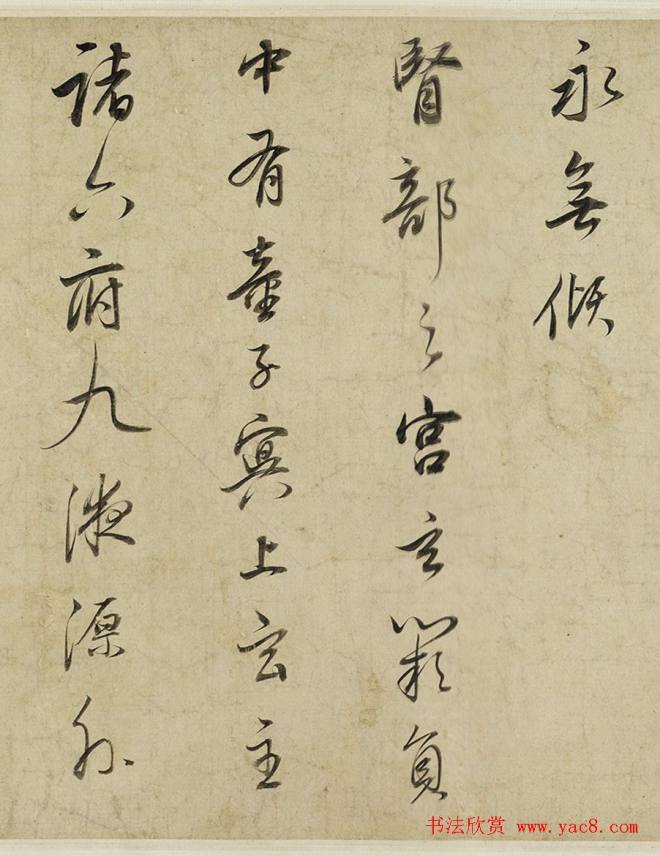 永無傾
腎部之宮玄闕負
中有童子冥上玄主
諸六府九液源外
书法欣赏 www.yac8.com